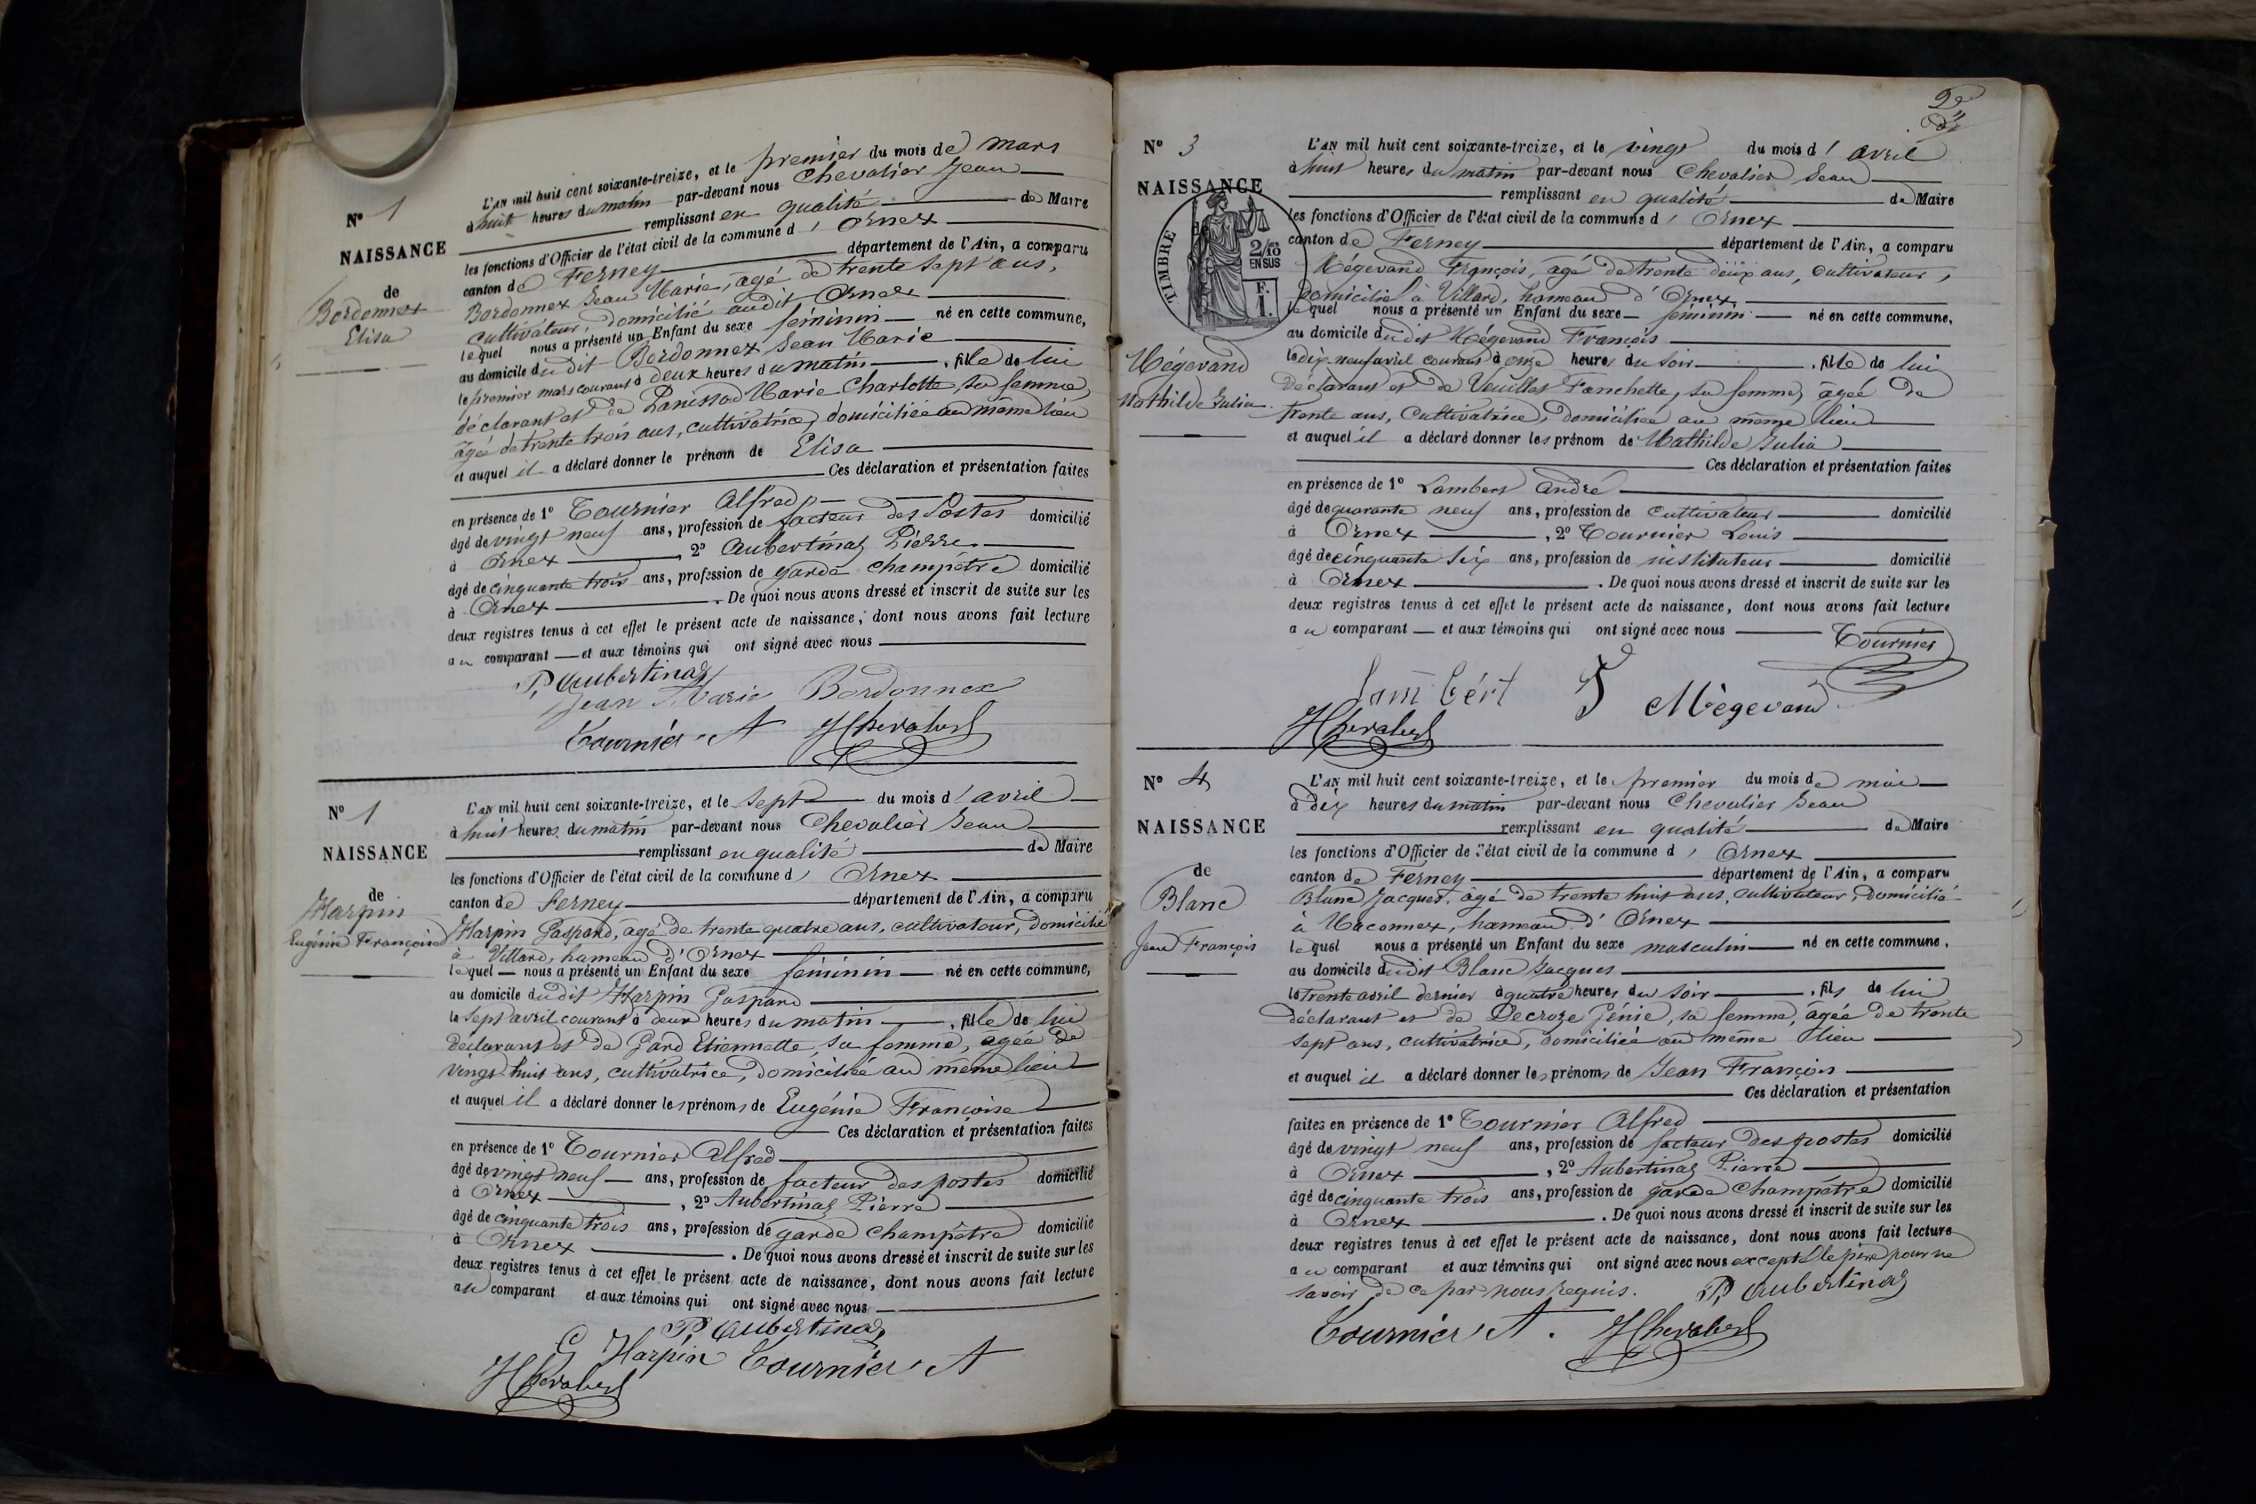 N° 1
NAISSANCE
de
Bordonnex
Elisa
L'AN mil huit cent soixante-treize, et le premier du mois de mars
à huit heures du matin par-devant nous Chevalier Jean
remplissant en qualité de Maire
les fonctions d'Officier de l'état civil de la commune d' Ornex
canton de Ferney département de l'Ain, a comparu
Bordonnex Jean Marie, âgé de trente sept ans,
cultivateur, domicilié audit Ornex
lequel nous a présenté un Enfant du sexe féminin né en cette commune,
au domicile dudit Bordonnex Jean Marie
le premier mars courant à deux heures du matin, fille de lui
déclarant et de Panissod Marie Charlotte, sa femme,
âgée de trente trois ans, cultivatrice, domiciliée au même lieu
et auquel il a déclaré donner le prénom de Elisa
Ces déclaration et présentation faites
en présence de 1° Tournier Alfred
âgé de vingt neuf ans, profession de facteur des Postes domicilié
à Ornex, 2° Aubertinaz Pierre
âgé de cinquante trois ans, profession de garde champêtre domicilié
à Ornex. De quoi nous avons dressé et inscrit de suite sur les
deux registres tenus à cet effet le présent acte de naissance, dont nous avons fait lecture
au comparant et aux témoins qui ont signé avec nous
P. Aubertinaz
Jean Marie Bordonnex
Tournier A JChevalier
N° 1
NAISSANCE
de
Harpin
Eugénie Françoise
L'AN mil huit cent soixante-treize, et le sept du mois d'avril
à huit heures du matin par-devant nous Chevalier Jean
remplissant en qualité de Maire
les fonctions d'Officier de l'état civil de la commune d' Ornex
canton de Ferney département de l'Ain, a comparu
Harpin Gaspard, âgé de trente quatre ans, cultivateur, domicilié
à Villard, hameau d'Ornex
lequel nous a présenté un Enfant du sexe féminin né en cette commune,
au domicile dudit Harpin Gaspard
le sept avril courant à deux heures du matin, fille de lui
déclarant et de Gard Etiennette, sa femme, agée de
vingt huit ans, cultivatrice, domiciliée au même lieu
et auquel il a déclaré donner les prénoms de Eugénie Françoise
Ces déclaration et présentation faites
en présence de 1° Tournier Alfred
âgé de vingt neuf ans, profession de facteur des postes domicilié
à Ornex, 2° Aubertinaz Pierre
âgé de cinquante trois ans, profession de garde champêtre domicilié
à Ornex. De quoi nous avons dressé et inscrit de suite sur les
deux registres tenus à cet effet le présent acte de naissance, dont nous avons fait lecture
au comparant et aux témoins qui ont signé avec nous
P. Aubertinaz
G Harpin Tournier A
JChevalier
2e
N° 3
NAISSANCE
TIMBRE
2/10
EN SUS
F.
1.
Mégevand
Mathilde Julia
L'AN mil huit cent soixante-treize, et le vingt du mois d' avril
à huit heures du matin par-devant nous Chevalier Jean
remplissant en qualité de Maire
les fonctions d'Officier de l'état civil de la commune d' Ornex
canton de Ferney département de l'Ain, a comparu
Mégevand François, âgé de trente deux ans, cultivateur,
domicilié à Villard, hameau d'Ornex
lequel nous a présenté un Enfant du sexe féminin né en cette commune,
au domicile dudit Mégevand François
le dix neuf avril courant à onze heures du soir, fille de lui
déclarant et de Vuillet Fanchette, sa femme, âgée de
trente ans, cultivatrice, domiciliée au même lieu
et auquel il a déclaré donner les prénom de Mathilde Julia
Ces déclaration et présentation faites
en présence de 1° Lambert André
âgé de quarante neuf ans, profession de cultivateur domicilié
à Ornex, 2° Tournier Louis
âgé de cinquante six ans, profession de instituteur domicilié
à Ornex. De quoi nous avons dressé et inscrit de suite sur les
deux registres tenus à cet effet le présent acte de naissance, dont nous avons fait lecture
au comparant et aux témoins qui ont signé avec nous Tournier
Lambért Mègevand
JChevalier
N° 4
NAISSANCE
de
Blanc
Jean François
L'AN mil huit cent soixante-treize, et le premier du mois de mai
à dix heures du matin par-devant nous Chevalier Jean
remplissant en qualité de Maire
les fonctions d'Officier de l'état civil de la commune d' Ornex
canton de Ferney département de l'Ain, a comparu
Blanc Jacques, âgé de trente huit ans, cultivateur, domicilié
à Maconnex, hameau d'Ornex
lequel nous a présenté un Enfant du sexe masculin né en cette commune,
au domicile dudit Blanc Jacques
le trente avril dernier à quatre heures du soir, fils de lui
déclarant et de Decroze Génie, sa femme, âgée de trente
sept ans, cultivatrice, domiciliée au même lieu
et auquel il a déclaré donner les prénoms de Jean François
Ces déclaration et présentation
faites en présence de 1° Tournier Alfred
âgé de vingt neuf ans, profession de facteur des postes domicilié
à Ornex, 2° Aubertinaz Pierre
âgé de cinquante trois ans, profession de garde champêtre domicilié
à Ornex. De quoi nous avons dressé et inscrit de suite sur les
deux registres tenus à cet effet le présent acte de naissance, dont nous avons fait lecture
au comparant et aux témoins qui ont signé avec nous excepté le père pour ne
savoir de ce par nous requis. P. Aubertinaz
Tournier A. JChevalier